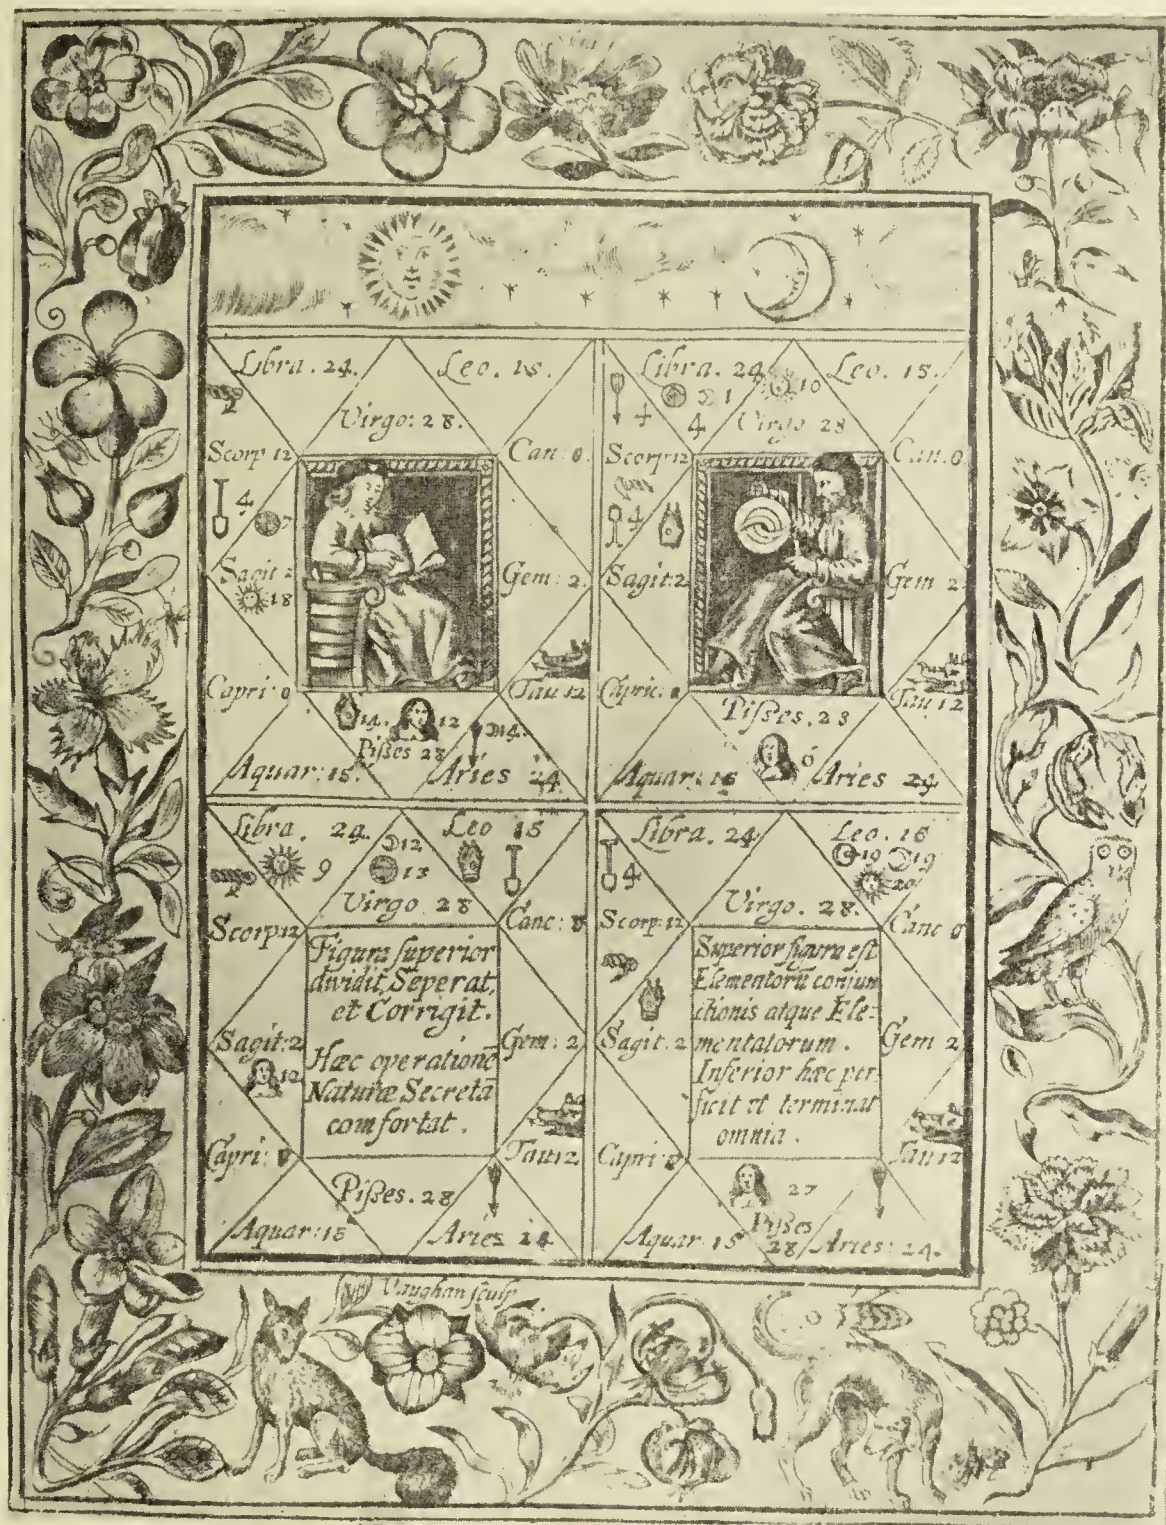 Libra. 24.
Leo. 15.
Virgo: 28.
Scorp 12
Can: 0.
4
7
Sagit 2
18
Gem: 2.
Capri: 0
Tau 12
14.
12
Pißes 28
Aquar: 15.
Aries 24
Libra. 24
Leo. 15.
1
10
4
4
Virgo 28
Scorp: 12
Can. 0
4
Sagit: 2
Gem 2
Capric: 0
Tau 12
Pißes. 28
6
Aquar: 15
Aries 24
Libra. 24
Leo 15
12
9
13
Virgo 28
Scorp 12
Canc: 0
Figura superior
dividit, Seperat,
et Corrigit.
Hæc operationē
Naturæ Secretā
comfortat.
Sagit: 2
Gem: 2
12
Capri: 0
Tau 12
Pißes. 28
Aquar: 15
Aries 24
Libra. 24
Leo. 15
19
19
20
4
Virgo. 28.
Scorp: 12
Canc 0
Superior figura est
Elementorū conjun
ctionis atque Ele:
mentatorum.
Inferior hæc per
ficit et terminat
omnia.
Sagit: 2
Gem 2
Capri: 0
Tau 12
27
Pißes
28
Aquar: 15
Aries: 24.
Vaughan sculp